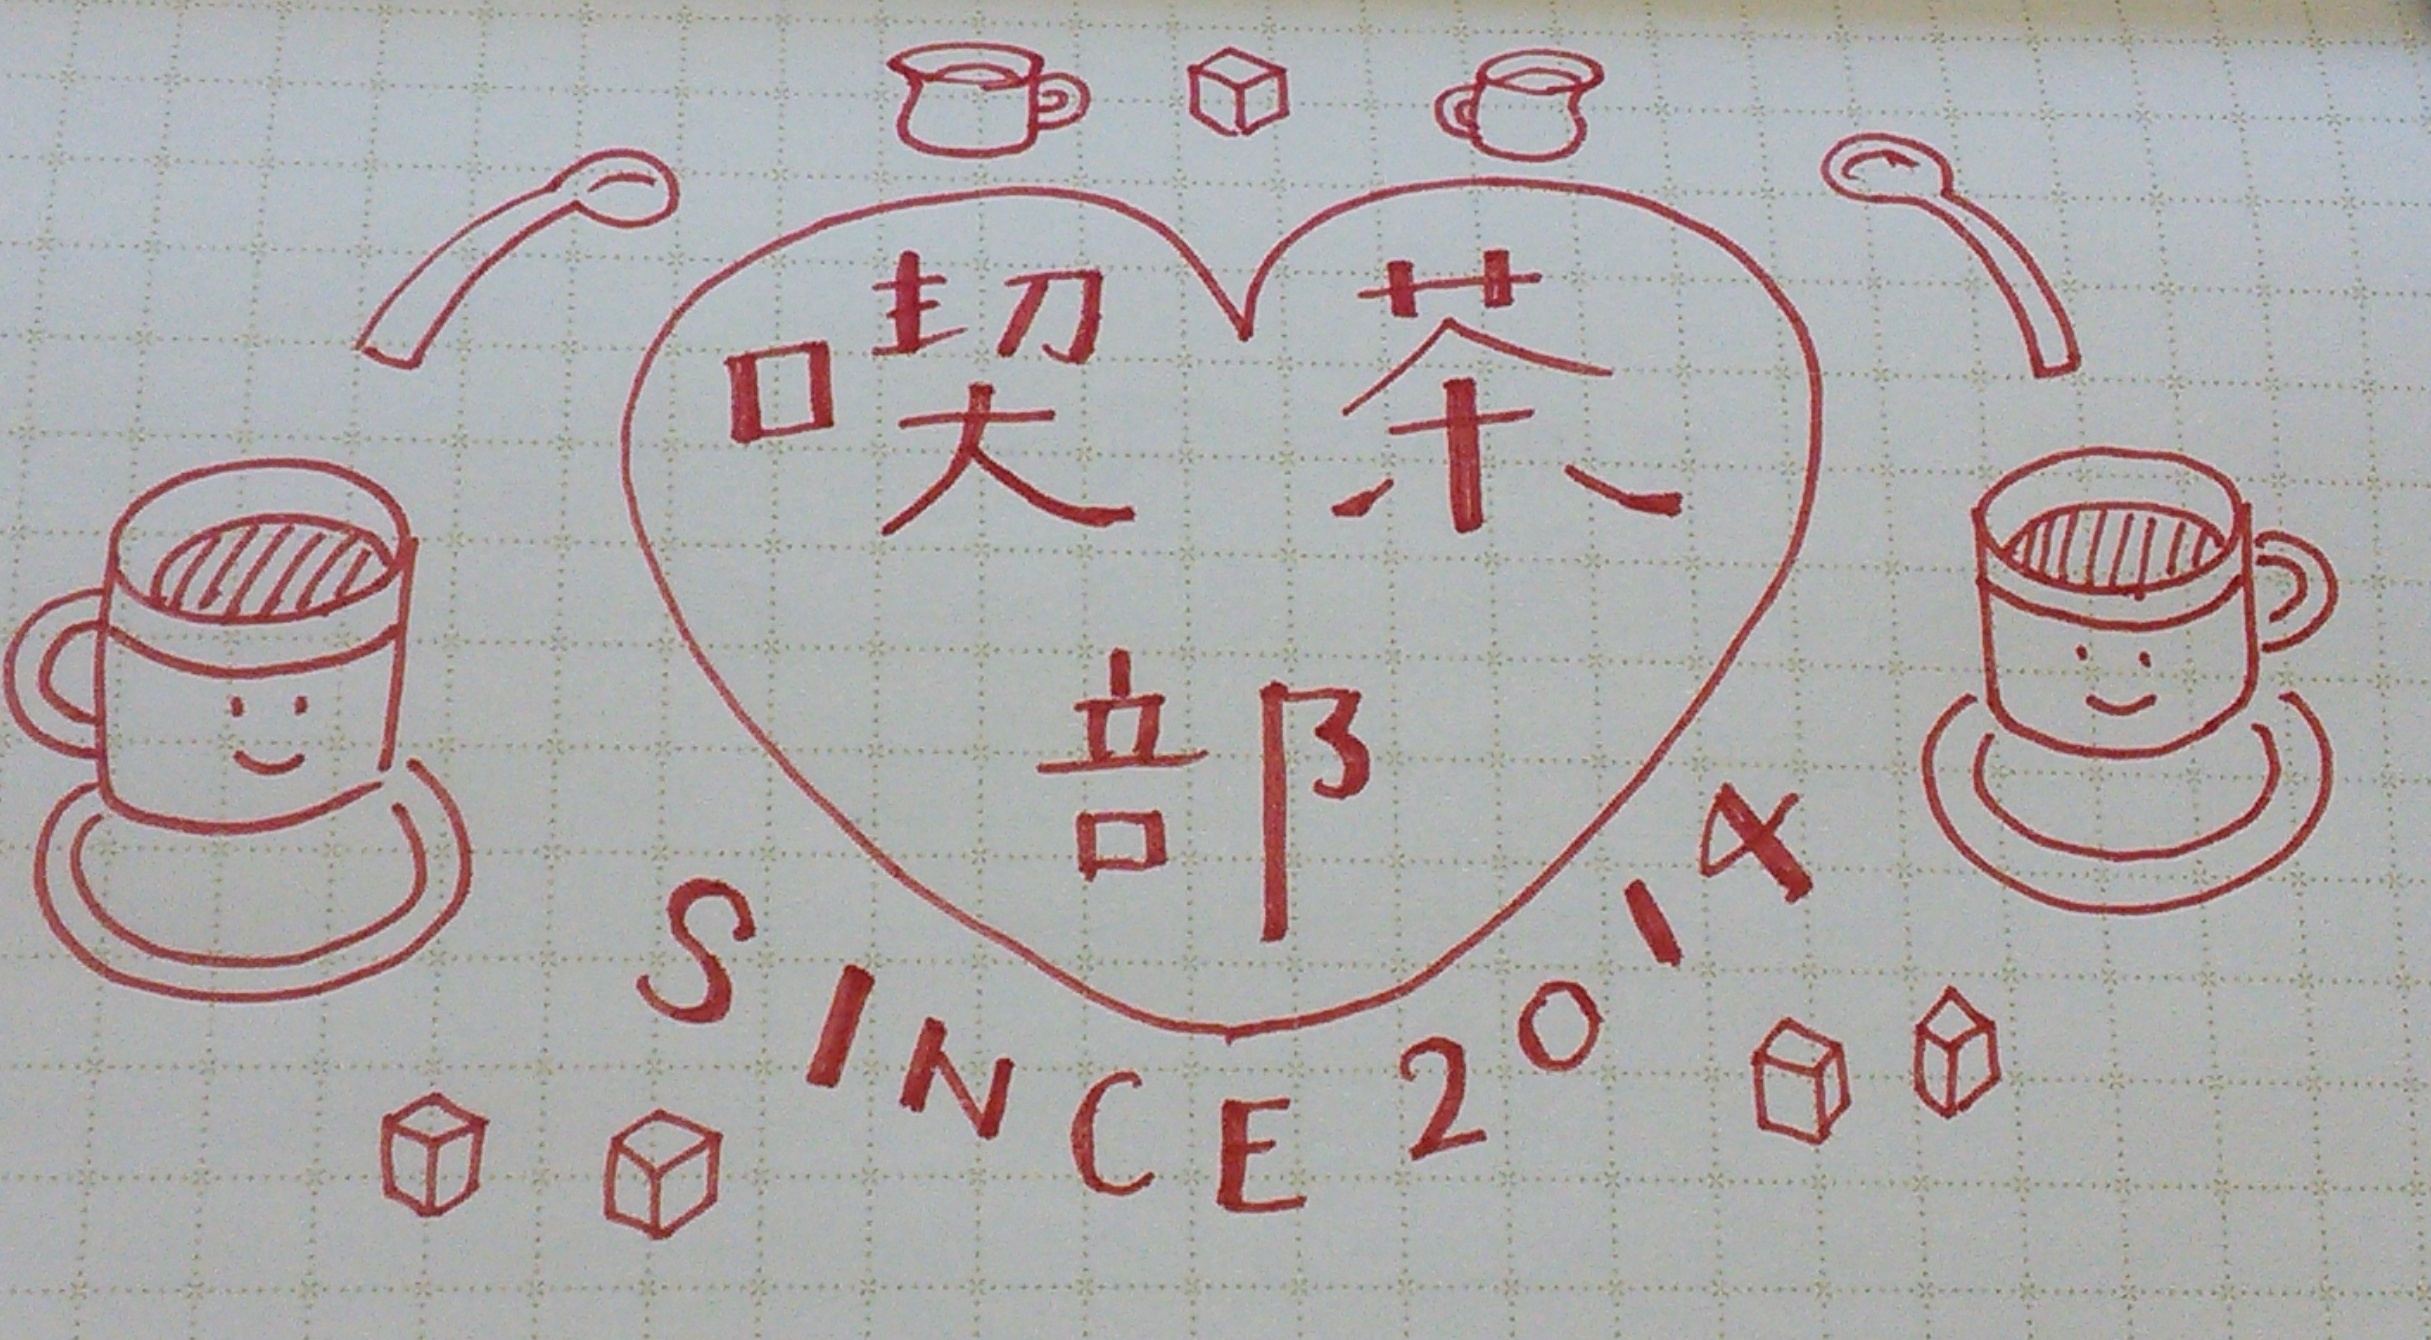 喫茶
部
SINCE 2014